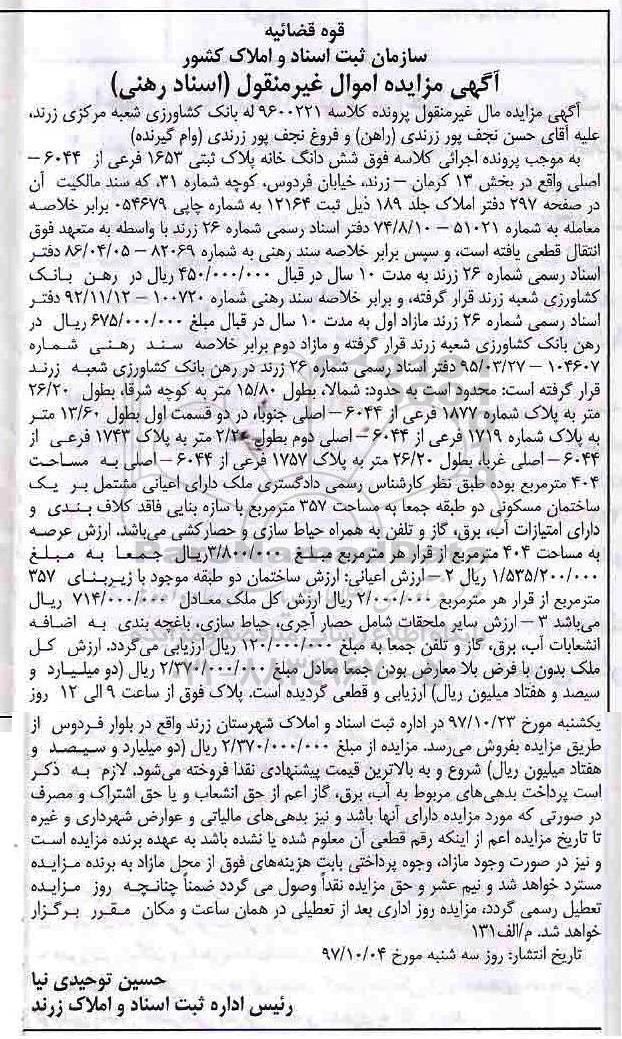 قوه قضائیه
سازمان ثبت اسناد و املاک کشور
آگهی مزایده اموال غیرمنقول (اسناد رهنی)
آگهی مزایده مال غیرمنقول پرونده کلاسه ۹۶۰۰۲۲۱ له بانک کشاورزی شعبه مرکزی زرند،
علیه آقای حسن نجف پور زرندی (راهن) و فروغ نجف پور زرندی (وام گیرنده)
به موجب پرونده اجرائی کلاسه فوق شش دانگ خانه پلاک ثبتی ۱۶۵۳ فرعی از ۶۰۴۴ –
اصلی واقع در بخش ۱۳ کرمان – زرند، خیابان فردوس، کوچه شماره ۳۱، که سند مالکیت آن
در صفحه ۲۹۷ دفتر املاک جلد ۱۸۹ ذیل ثبت ۱۲۱۶۴ به شماره چاپی ۰۵۴۶۷۹ برابر خلاصه
معامله به شماره ۵۱۰۲۱ – ۷۴/۸/۱۰ دفتر اسناد رسمی شماره ۲۶ زرند با واسطه به متعهد فوق
انتقال قطعی یافته است، و سپس برابر خلاصه سند رهنی به شماره ۸۲۰۶۹ – ۸۶/۰۴/۰۵ دفتر
اسناد رسمی شماره ۲۶ زرند به مدت ۱۰ سال در قبال ۴۵۰/۰۰۰/۰۰۰ ریال در رهن بانک
کشاورزی شعبه زرند قرار گرفته، و برابر خلاصه سند رهنی شماره ۱۰۰۷۲۰ – ۹۲/۱۱/۱۲ دفتر
اسناد رسمی شماره ۲۶ زرند مازاد اول به مدت ۱۰ سال در قبال مبلغ ۶۷۵/۰۰۰/۰۰۰ ریال در
رهن بانک کشاورزی شعبه زرند قرار گرفته و مازاد دوم برابر خلاصه سند رهنی شماره
۱۰۴۶۰۷ – ۹۵/۰۳/۲۷ دفتر اسناد رسمی شماره ۲۶ زرند در رهن بانک کشاورزی شعبه زرند
قرار گرفته است: محدود است به حدود: شمالا، بطول ۱۵/۸۰ متر به کوچه شرقا، بطول ۲۶/۲۰
متر به پلاک شماره ۱۸۷۷ فرعی از ۶۰۴۴ – اصلی جنوبا، در دو قسمت اول بطول ۱۳/۶۰ متر
به پلاک شماره ۱۷۱۹ فرعی از ۶۰۴۴ – اصلی دوم بطول ۲/۲۰ متر به پلاک ۱۷۴۳ فرعی از
۶۰۴۴ – اصلی غربا، بطول ۲۶/۲۰ متر به پلاک ۱۷۵۷ فرعی از ۶۰۴۴ – اصلی به مساحت
۴۰۴ مترمربع بوده طبق نظر کارشناس رسمی دادگستری ملک دارای اعیانی مشتمل بر یک
ساختمان مسکونی دو طبقه جمعا به مساحت ۳۵۷ مترمربع با سازه بنایی فاقد کلاف بندی و
دارای امتیازات آب، برق، گاز و تلفن به همراه حیاط سازی و حصارکشی می‌باشد. ارزش عرصه
به مساحت ۴۰۴ مترمربع از قرار هر مترمربع مبلغ ۳/۸۰۰/۰۰۰ریال جمعا به مبلغ
۱/۵۳۵/۲۰۰/۰۰۰ ریال ۲ – ارزش اعیانی: ارزش ساختمان دو طبقه موجود با زیربنای ۳۵۷
مترمربع از قرار هر مترمربع ۲/۰۰۰/۰۰۰ ریال ارزش کل ملک معادل ۷۱۴/۰۰۰/۰۰۰ ریال
می‌باشد ۳ – ارزش سایر ملحقات شامل حصار آجری، حیاط سازی، باغچه بندی به اضافه
انشعابات آب، برق، گاز و تلفن جمعا به مبلغ ۱۲۰/۰۰۰/۰۰۰ ریال ارزیابی می‌گردد. ارزش کل
ملک بدون با فرض بلا معارض بودن جمعا معادل مبلغ ۲/۳۷۰/۰۰۰/۰۰۰ ریال (دو میلیارد و
سیصد و هفتاد میلیون ریال) ارزیابی و قطعی گردیده است. پلاک فوق از ساعت ۹ الی ۱۲ روز
یکشنبه مورخ ۹۷/۱۰/۲۳ در اداره ثبت اسناد و املاک شهرستان زرند واقع در بلوار فردوس از
طریق مزایده بفروش می‌رسد. مزایده از مبلغ ۲/۳۷۰/۰۰۰/۰۰۰ ریال (دو میلیارد و سیصد و
هفتاد میلیون ریال) شروع و به بالاترین قیمت پیشنهادی نقدا فروخته می‌شود. لازم به ذکر
است پرداخت بدهی‌های مربوط به آب، برق، گاز اعم از حق انشعاب و یا حق اشتراک و مصرف
در صورتی که مورد مزایده دارای آنها باشد و نیز بدهی‌های مالیاتی و عوارض شهرداری و غیره
تا تاریخ مزایده اعم از اینکه رقم قطعی آن معلوم شده یا نشده باشد به عهده برنده مزایده است
و نیز در صورت وجود مازاد، وجوه پرداختی بابت هزینه‌های فوق از محل مازاد به برنده مزایده
مسترد خواهد شد و نیم عشر و حق مزایده نقداً وصول می گردد ضمناً چنانچه روز مزایده
تعطیل رسمی گردد، مزایده روز اداری بعد از تعطیلی در همان ساعت و مکان مقرر برگزار
خواهد شد. م/الف۱۳۱
تاریخ انتشار: روز سه شنبه مورخ ۹۷/۱۰/۰۴
حسین توحیدی نیا
رئیس اداره ثبت اسناد و املاک زرند